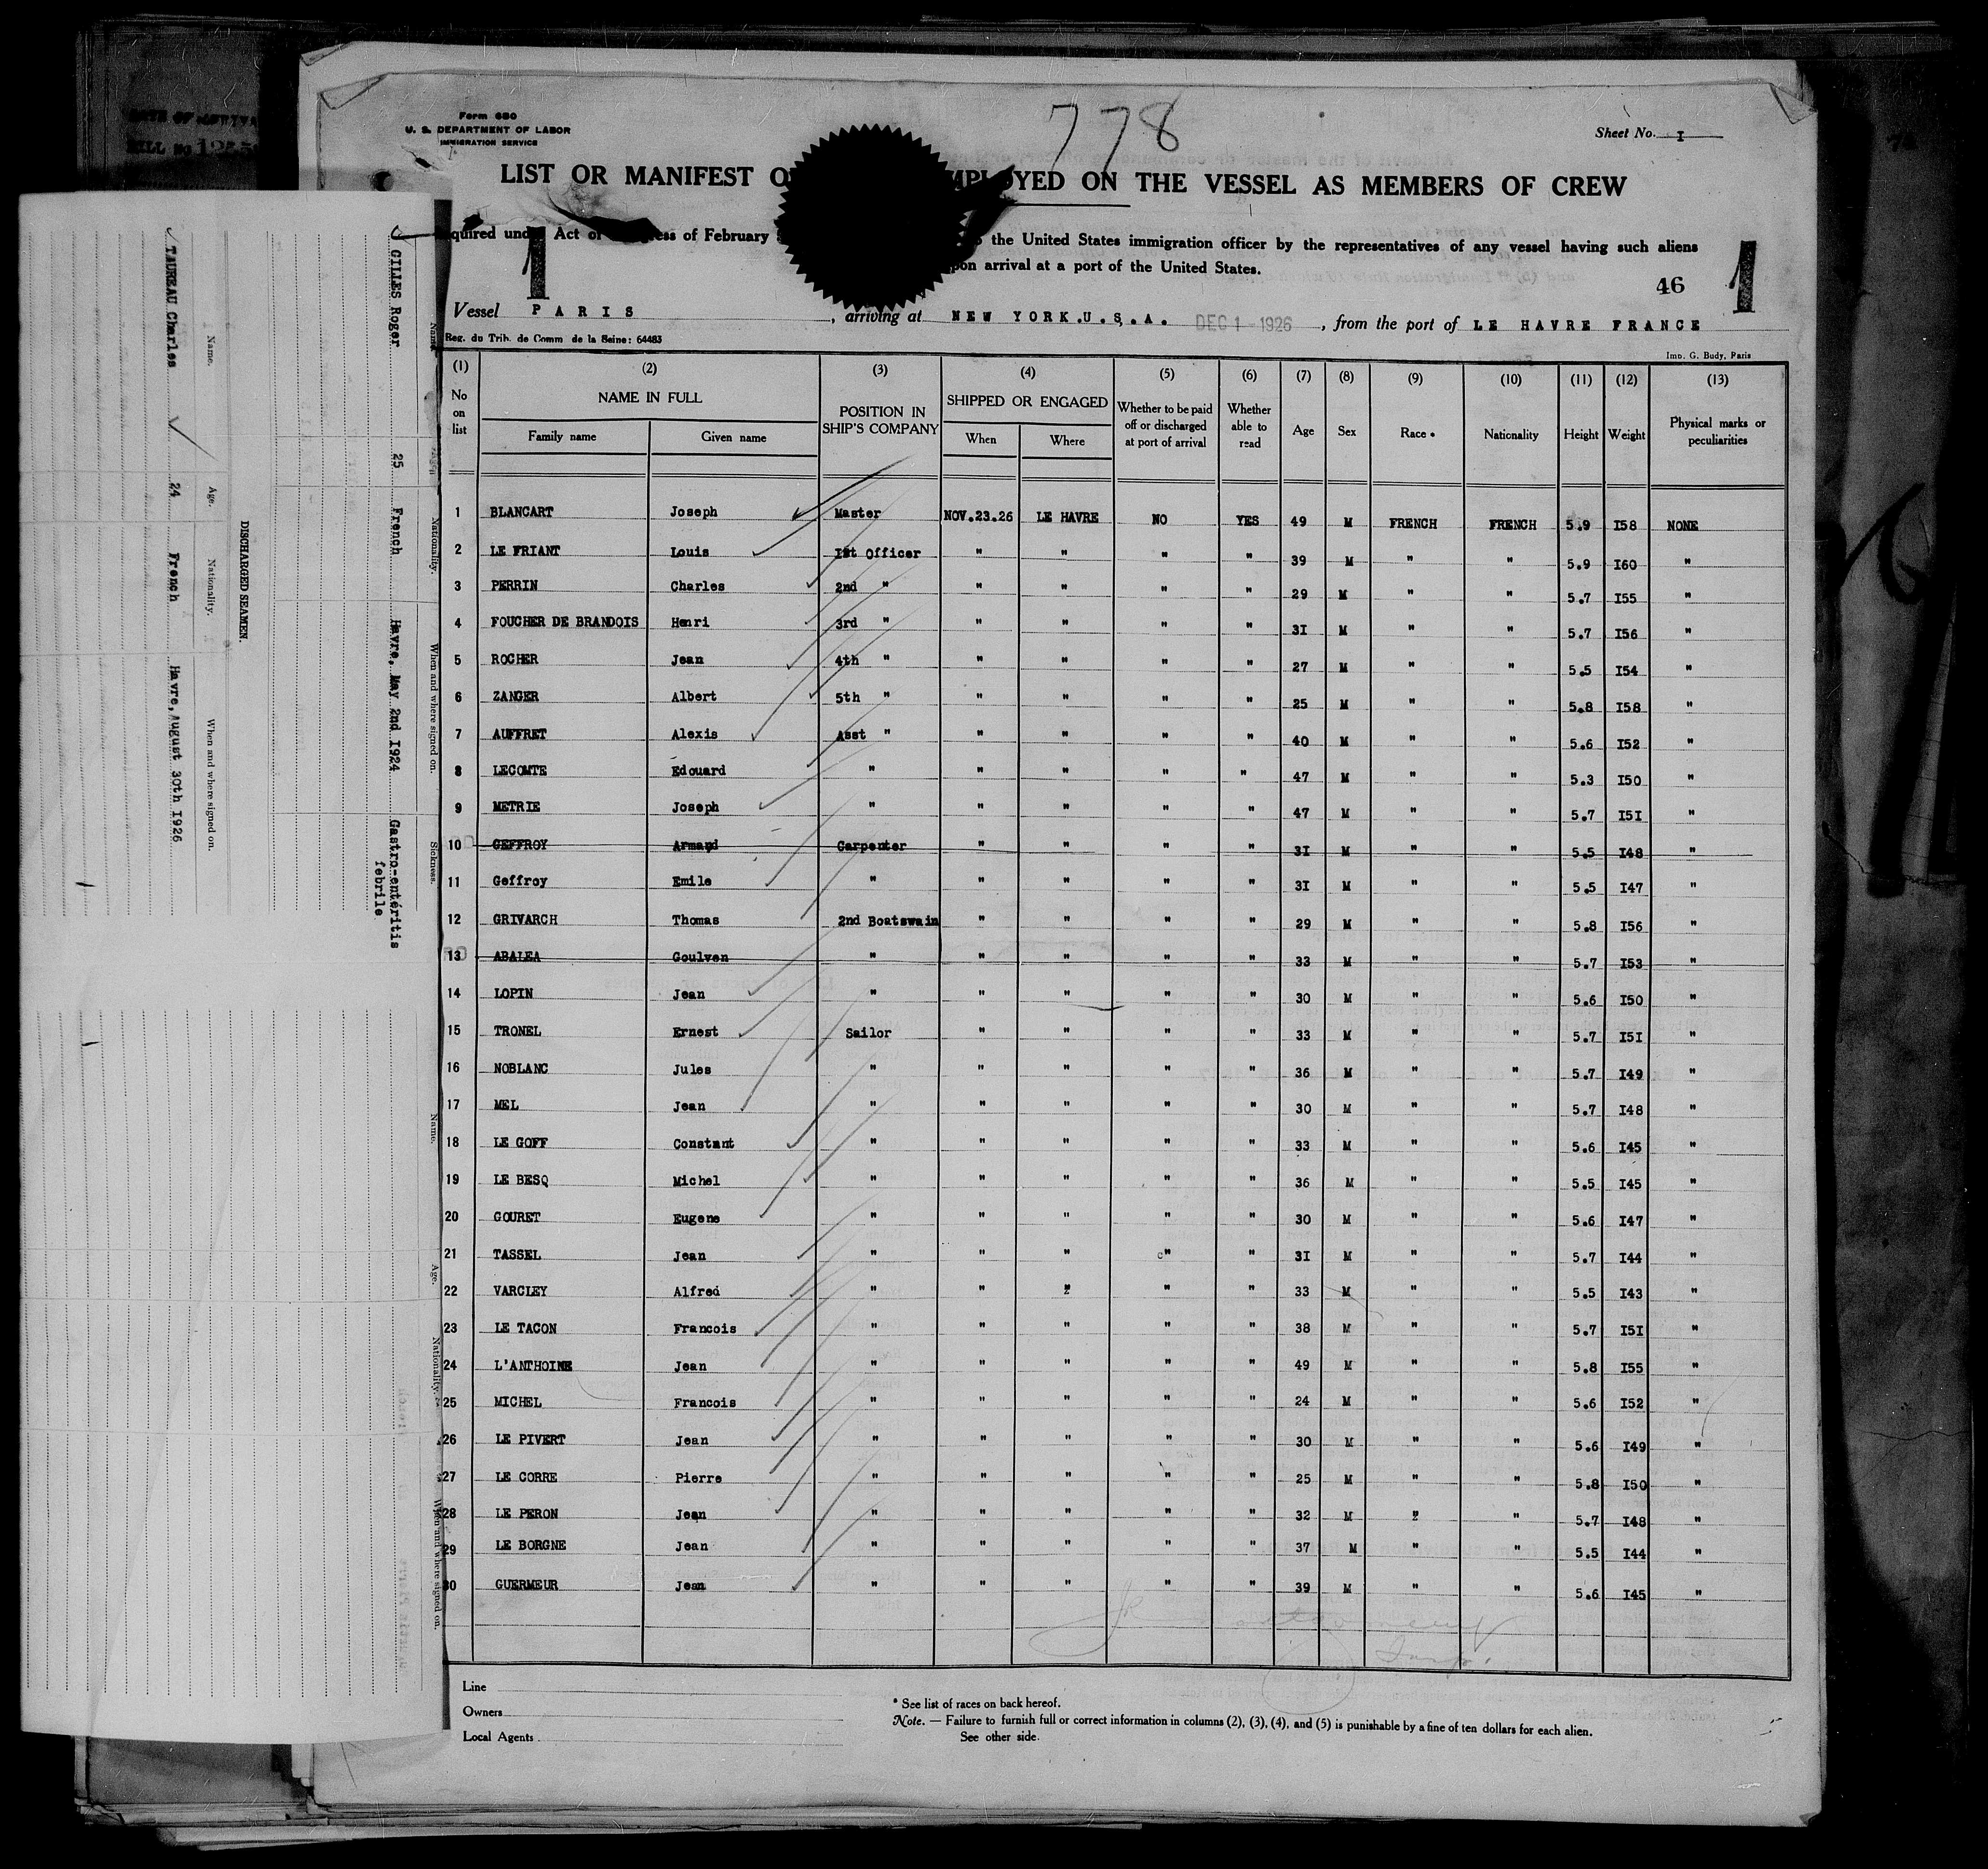 Form 680
U. S. DEPARTMENT OF LABOR
IMMIGRATION SERVICE
778
Sheet No. I
LIST OR MANIFEST O MPLOYED ON THE VESSEL AS MEMBERS OF CREW
quired und Act of ess of February the United States immigration officer by the representatives of any vessel having such aliens
pon arrival at a port of the United States.
1 46 1
Vessel PARIS , arriving at NEW YORK.U.S.A. DEC 1 - 1926 , from the port of LE HAVRE FRANCE
Reg. du Trib. de Comm de la Seine: 64483
Imp. G. Budy, Paris
(1) (2) (3) (4) (5) (6) (7) (8) (9) (10) (11) (12) (13)
No on list NAME IN FULL POSITION IN SHIP'S COMPANY SHIPPED OR ENGAGED Whether to be paid off or discharged at port of arrival Whether able to read Age Sex Race * Nationality Height Weight Physical marks or peculiarities
Family name Given name When Where
1 BLANCART Joseph Master NOV.23.26 LE HAVRE NO YES 49 M FRENCH FRENCH 5.9 I58 NONE
2 LE FRIANT Louis Ist Officer " " " " 39 M " " 5.9 I60 "
3 PERRIN Charles 2nd " " " " " 29 M " " 5.7 I55 "
4 FOUCHER DE BRANDOIS Henri 3rd " " " " " 3I M " " 5.7 I56 "
5 ROCHER Jean 4th " " " " " 27 M " " 5.5 I54 "
6 ZANGER Albert 5th " " " " " 25 M " " 5.8 I58 "
7 AUFFRET Alexis Asst " " " " " 40 M " " 5.6 I52 "
8 LECOMTE Edouard " " " " " 47 M " " 5.3 I50 "
9 METRIE Joseph " " " " " 47 M " " 5.7 I5I "
10 GEFFROY Armand Carpenter " " " " 3I M " " 5.5 I48 "
11 Geffroy Emile " " " " " 3I M " " 5.5 I47 "
12 GRIVARCH Thomas 2nd Boatswain " " " " 29 M " " 5.8 I56 "
13 ABALEA Goulven " " " " " 33 M " " 5.7 I53 "
14 LOPIN Jean " " " " " 30 M " " 5.6 I50 "
15 TRONEL Ernest Sailor " " " " 33 M " " 5.7 I5I "
16 NOBLANC Jules " " " " " 36 M " " 5.7 I49 "
17 MEL Jean " " " " " 30 M " " 5.7 I48 "
18 LE GOFF Constant " " " " " 33 M " " 5.6 I45 "
19 LE BESQ Michel " " " " " 36 M " " 5.5 I45 "
20 GOURET Eugene " " " " " 30 M " " 5.6 I47 "
21 TASSEL Jean " " " " " 3I M " " 5.7 I44 "
22 VARCLEY Alfred " " " " " 33 M " " 5.5 I43 "
23 LE TACON Francois " " " " " 38 M " " 5.7 I5I "
24 L'ANTHOINE Jean " " " " " 49 M " " 5.8 I55 "
25 MICHEL Francois " " " " " 24 M " " 5.6 I52 "
26 LE PIVERT Jean " " " " " 30 M " " 5.6 I49 "
27 LE CORRE Pierre " " " " " 25 M " " 5.8 I50 "
28 LE PERON Jean " " " " " 32 M " " 5.7 I48 "
29 LE BORGNE Jean " " " " " 37 M " " 5.5 I44 "
30 GUERMEUR Jean " " " " " 39 M " " 5.6 I45 "
Line
Owners
Local Agents
* See list of races on back hereof.
Note. — Failure to furnish full or correct information in columns (2), (3), (4), and (5) is punishable by a fine of ten dollars for each alien.
See other side.
Name. Age. Nationality. When and where signed on. Sickness.
GILLES Roger 25 French Havre, May 2nd I924 Gastro-entéritis
febrile
Name. Age. Nationality. When and where signed on.
DISCHARGED SEAMEN.
Name. Age. Nationality. When and where signed on.
TAUREAU Charles 24 French Havre, August 30th I926